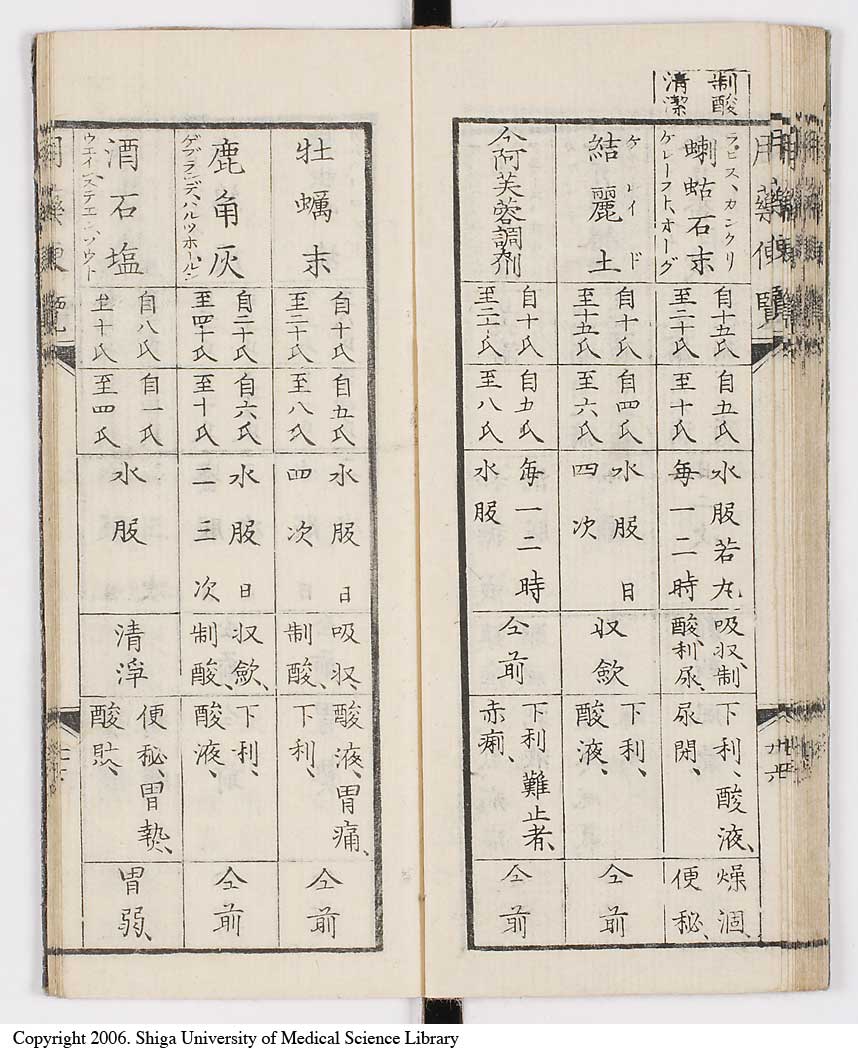 制酸
清潔
用藥便覽
ラピス、カンクリ
蜊蛄石末
ケレーフト、オーグ
自十五氏
至二十氏
自五氏
至十氏
水服若丸
每一二時
吸収、制
酸、利尿、
下利、酸液、
尿閉、
燥涸、
便秘、
ケレイド
結麗土
自十氏
至十五氏
自四氏
至六氏
水服日
四次
収歛
下利、
酸液、
仝前
仝阿芙蓉調剤
自十氏
至二十氏
自五氏
至八氏
每一二時
水服
仝前
下利難止者、
赤痢、
仝前
牡蠣末
自十氏
至二十氏
自五氏
至八氏
水服日
四次
吸収、
制酸、
酸液、胃痛、
下利、
仝前
鹿角灰
ゲブランデ、ハルツホールン
自二十氏
至四十氏
自六氏
至十氏
水服日
二三次
収歛、
制酸、
下利、
酸液、
仝前
酒石塩
ウエインステエンソウト
自八氏
至十氏
自一氏
至四氏
水服
清浄
便秘、胃熱、
酸敗、
胃弱、
Copyright 2006. Shiga University of Medical Science Library